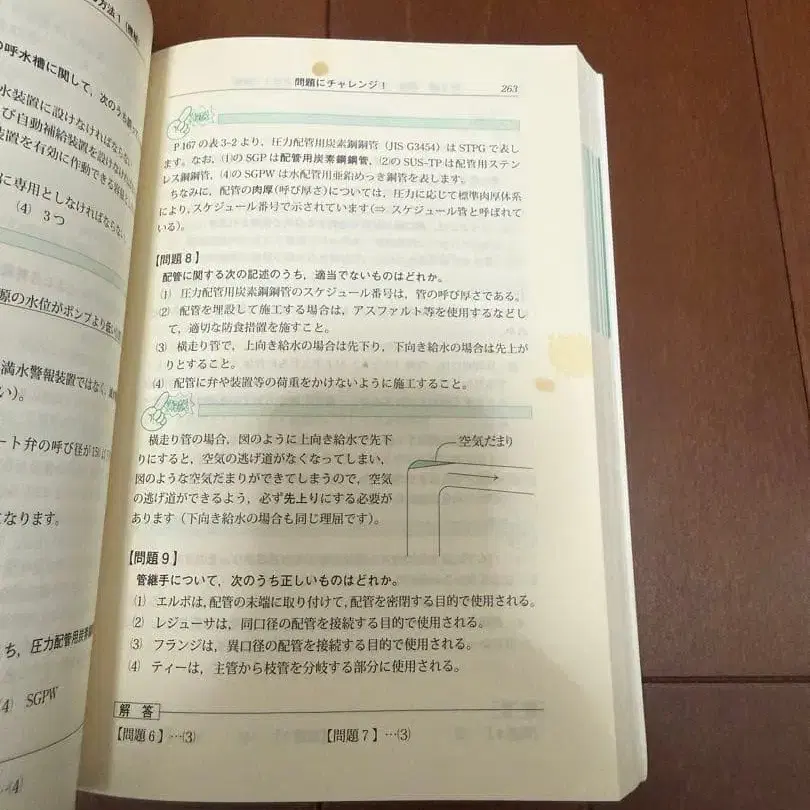 方法1(機械
の呼水槽に関して、次のうち
水装置に設けなければならない
び自動補給装置を設けなければ
装置を有効に作動できる容量
に専用としなければならない
(4) 3つ
源の水位がポンプより低い
満水警報装置ではなく、減
い)。
ート弁の呼び径が150以下
なります。
ち、圧力配管用炭素鋼鋼
(4) SGPW
…(4)
問題にチャレンジ! 263
解説
P167の表3-2より、圧力配管用炭素鋼鋼管(JIS G3454)はSTPGで表し
ます。なお、(1)のSGPは配管用炭素鋼鋼管、(2)のSUS-TPは配管用ステン
レス鋼鋼管、(4)のSGPWは水配管用亜鉛めっき鋼管を表します。
ちなみに、配管の肉厚(呼び厚さ)については、圧力に応じて標準肉厚体系
により、スケジュール番号で示されています(⇒ スケジュール管と呼ばれて
いる)。
【問題8】
配管に関する次の記述のうち、適当でないものはどれか。
(1) 圧力配管用炭素鋼鋼管のスケジュール番号は、管の呼び厚さである。
(2) 配管を埋設して施工する場合は、アスファルト等を使用するなどし
て、適切な防食措置を施すこと。
(3) 横走り管で、上向き給水の場合は先下り、下向き給水の場合は先上が
りとすること。
(4) 配管に弁や装置等の荷重をかけないように施工すること。
解説
横走り管の場合、図のように上向き給水で先下
りにすると、空気の逃げ道がなくなってしまい、
図のような空気だまりができてしまうので、空気
の逃げ道ができるよう、必ず先上りにする必要が
あります(下向き給水の場合も同じ理屈です)。
空気だまり
【問題9】
管継手について、次のうち正しいものはどれか。
(1) エルボは、配管の末端に取り付けて、配管を密閉する目的で使用される。
(2) レジューサは、同口径の配管を接続する目的で使用される。
(3) フランジは、異口径の配管を接続する目的で使用される。
(4) ティーは、主管から枝管を分岐する部分に使用される。
解答
【問題6】…(3) 【問題7】…(3)